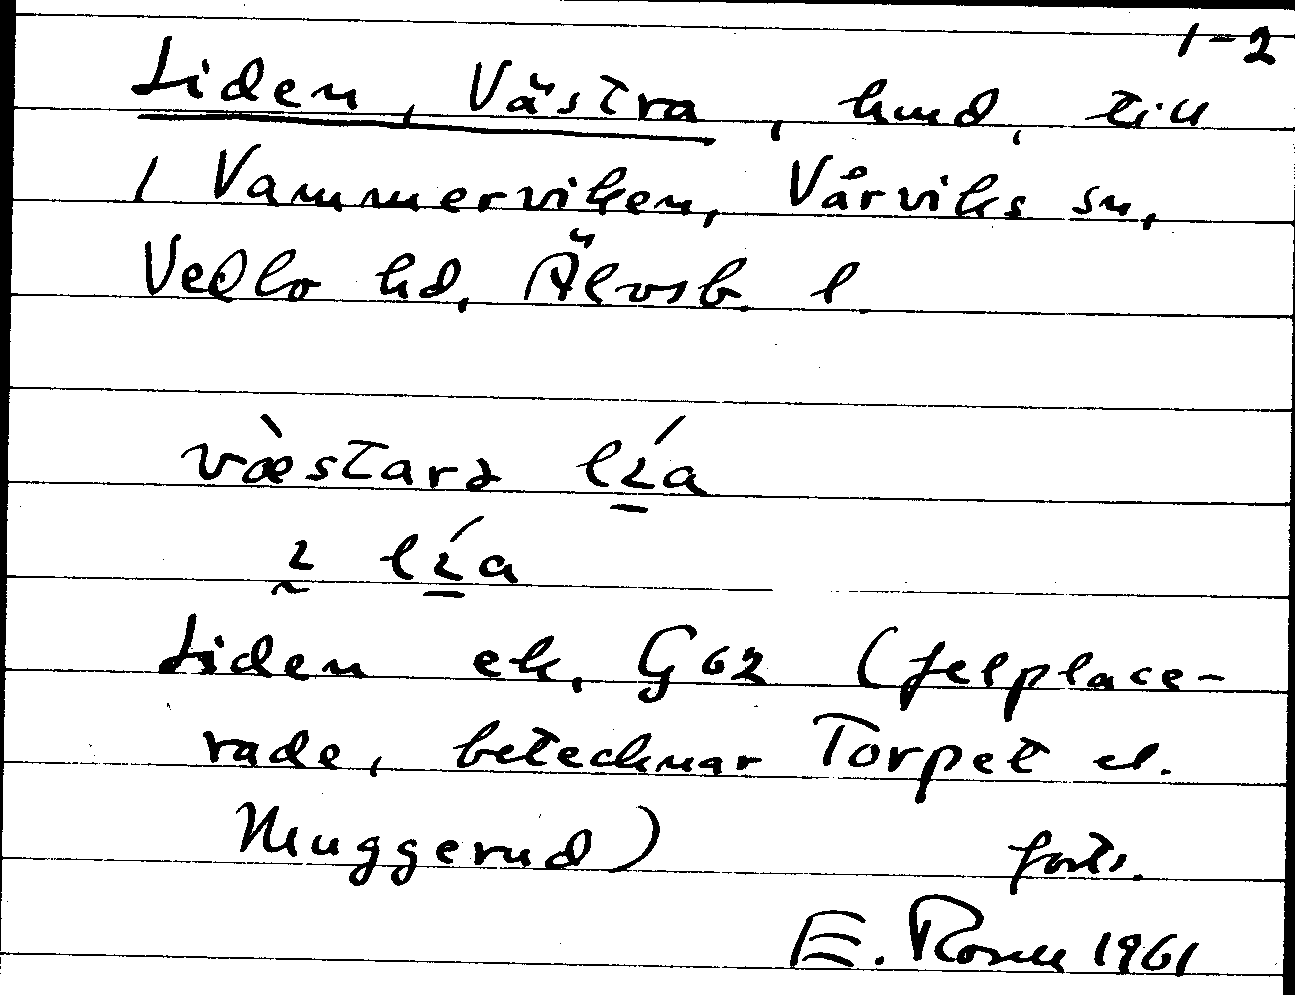 1-2
Liden, Västra, hmd. till
1 Vammerviken, Vårviks sn,
Vedbo hd, Älvsb. l.
væ̀stara lía
ı lía
Liden ek. G62 (felplace-
rade, betecknar Torpet el.
Muggerud) forts.
E. Rosell 1961